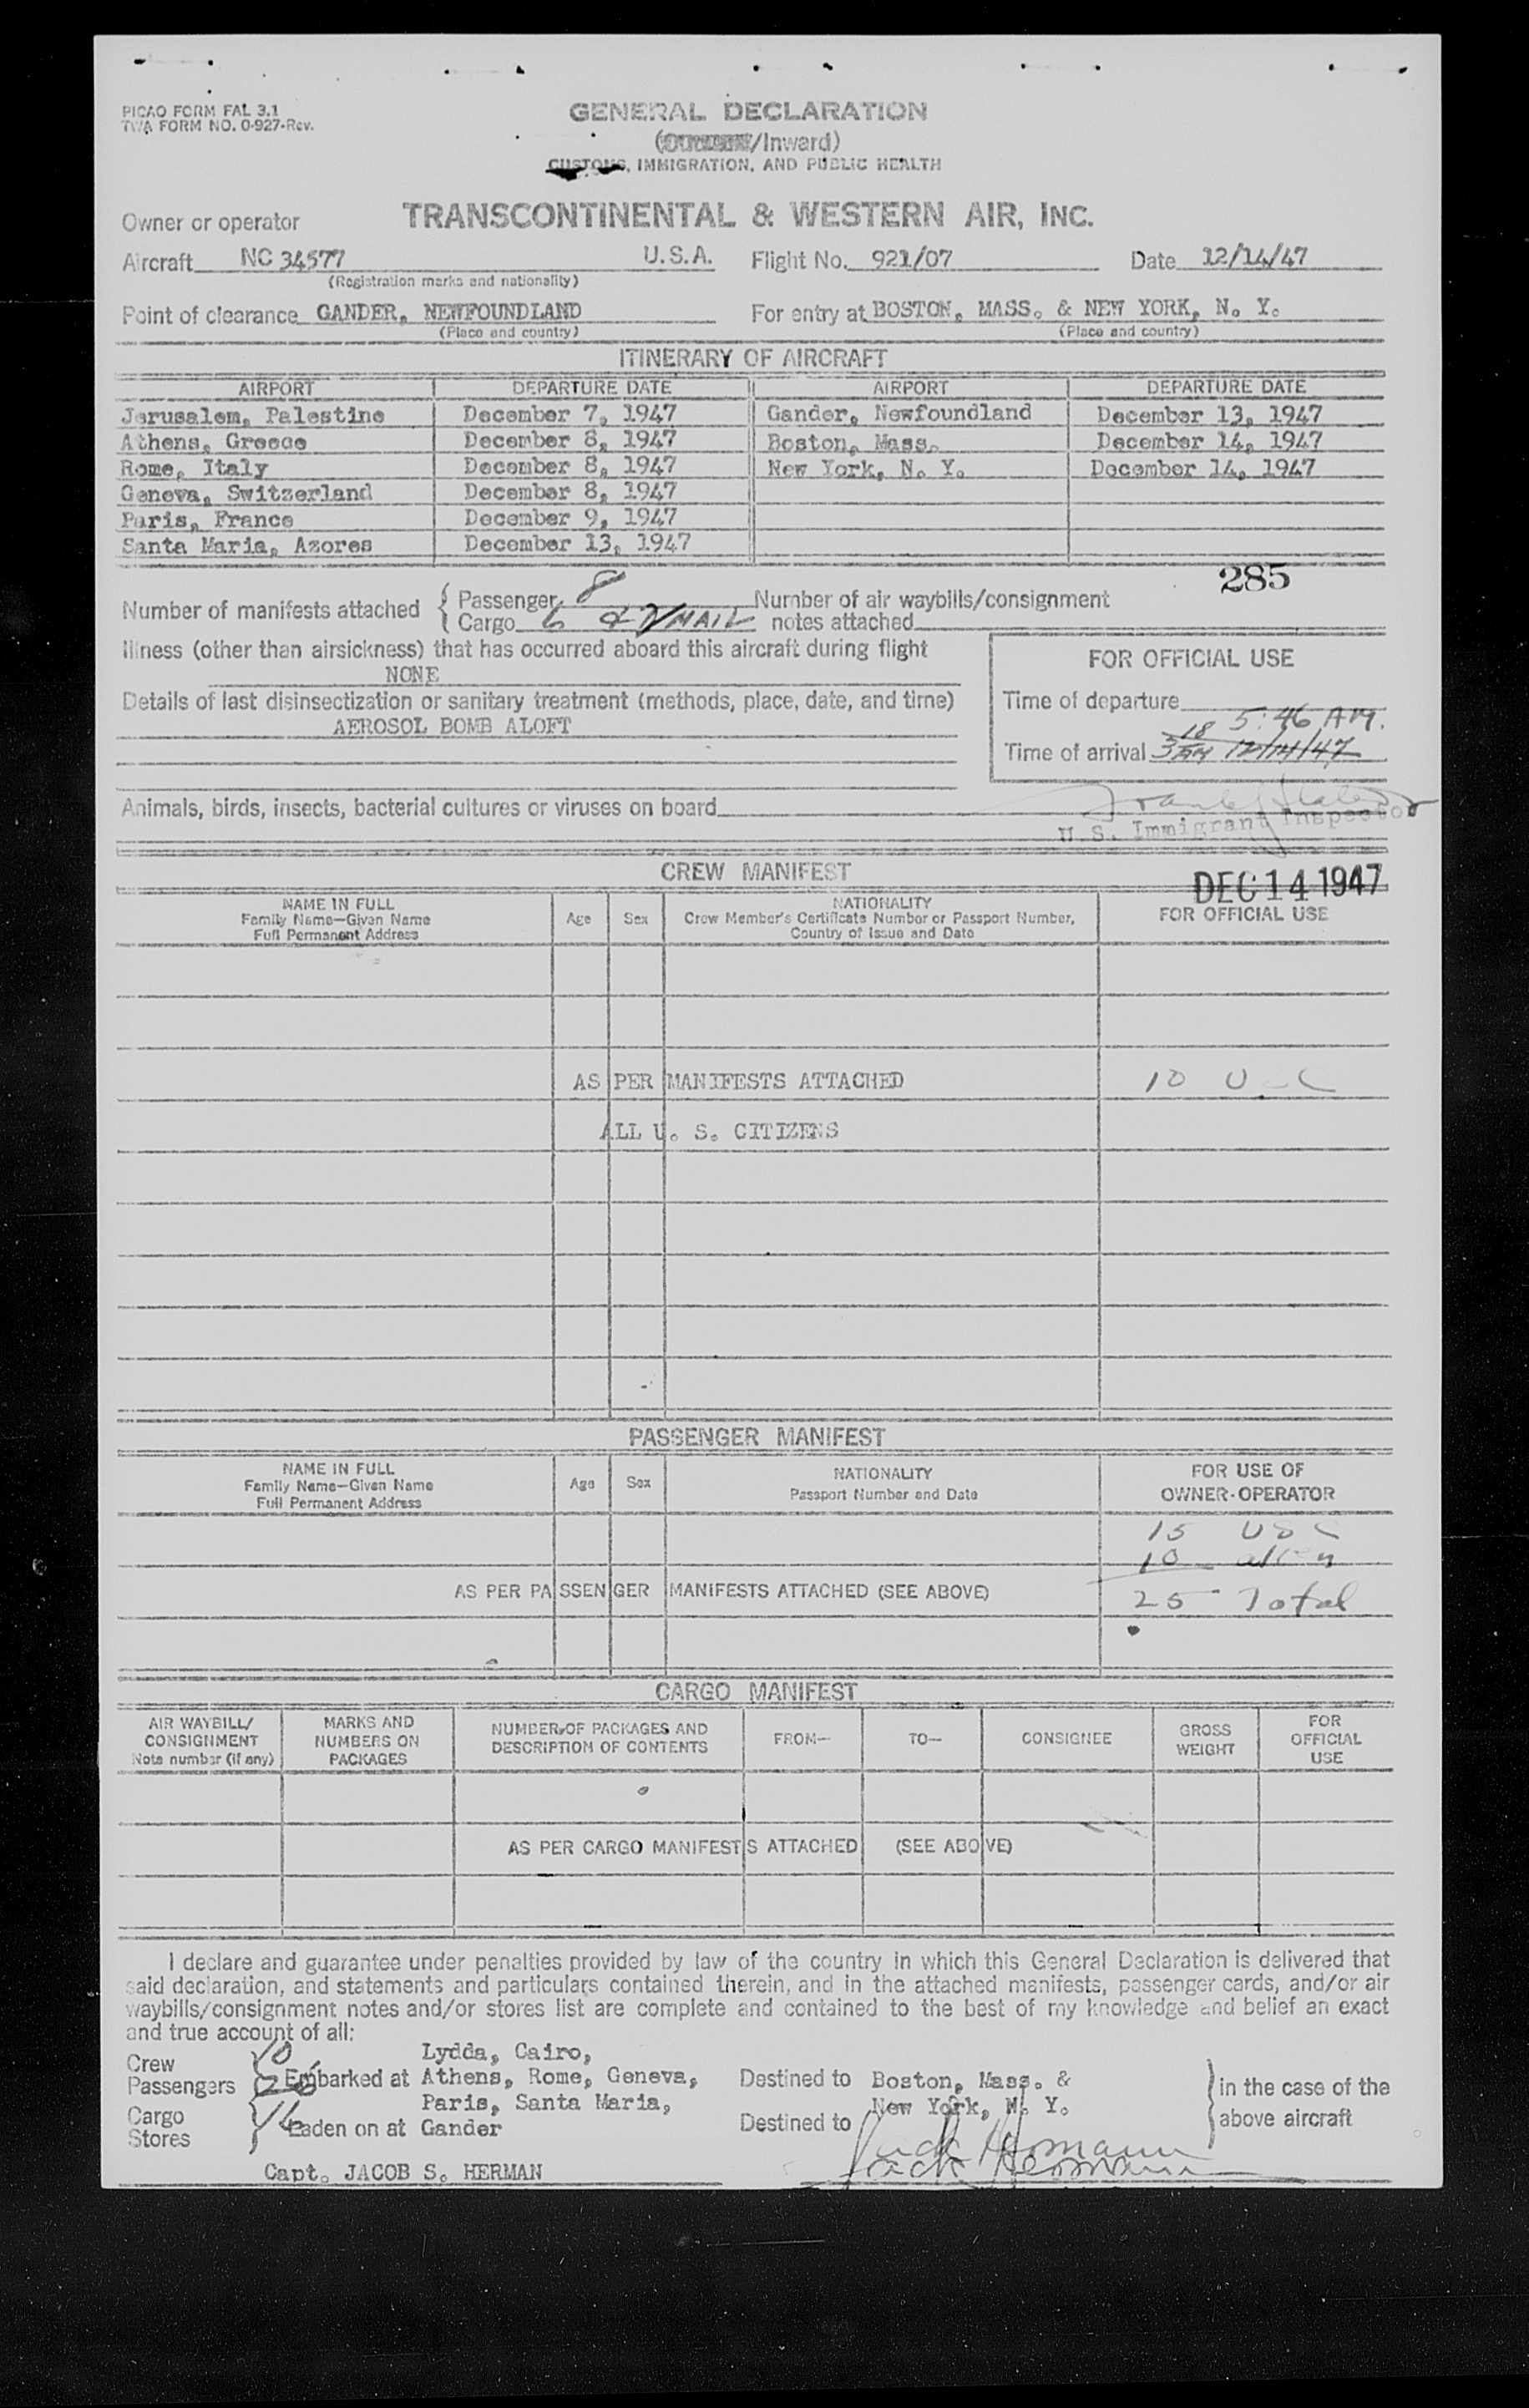 PICAO FORM FAL 3.1
TWA FORM NO. 0-927-Rev.
GENERAL DECLARATION
(/Inward)
CUSTOMS, IMMIGRATION, AND PUBLIC HEALTH
Owner or operator TRANSCONTINENTAL & WESTERN AIR, INC.
Aircraft NC 34577 U.S.A. Flight No. 921/07 Date 12/14/47
(Registration marks and nationality)
Point of clearance GANDER, NEWFOUNDLAND For entry at BOSTON, MASS. & NEW YORK, N. Y.
(Place and country) (Place and country)
ITINERARY OF AIRCRAFT
AIRPORT DEPARTURE DATE AIRPORT DEPARTURE DATE
Jerusalem, Palestine December 7, 1947 Gander, Newfoundland December 13, 1947
Athens, Greece December 8, 1947 Boston, Mass. December 14, 1947
Rome, Italy December 8, 1947 New York, N. Y. December 14, 1947
Geneva, Switzerland December 8, 1947
Paris, France December 9, 1947
Santa Maria, Azores December 13, 1947
285
Number of manifests attached { Passenger 8 Number of air waybills/consignment
Cargo 6 & 2 MAIL notes attached
Illness (other than airsickness) that has occurred aboard this aircraft during flight
NONE
Details of last disinsectization or sanitary treatment (methods, place, date, and time)
AEROSOL BOMB ALOFT
FOR OFFICIAL USE
Time of departure 5:46 AM.
Time of arrival 3 18 AM 12/14/47
Animals, birds, insects, bacterial cultures or viruses on board
U. S. Immigrant Inspector
CREW MANIFEST
DEC 14 1947
NAME IN FULL
Family Name—Given Name
Full Permanent Address
Age Sex
NATIONALITY
Crew Member's Certificate Number or Passport Number,
Country of Issue and Date
FOR OFFICIAL USE
AS PER MANIFESTS ATTACHED 10 U C
ALL U. S. CITIZENS
PASSENGER MANIFEST
NAME IN FULL
Family Name—Given Name
Full Permanent Address
Age Sex
NATIONALITY
Passport Number and Date
FOR USE OF
OWNER-OPERATOR
15 USC
10 alien
AS PER PASSENGER MANIFESTS ATTACHED (SEE ABOVE) 25 Total
CARGO MANIFEST
AIR WAYBILL/
CONSIGNMENT
Note number (if any)
MARKS AND
NUMBERS ON
PACKAGES
NUMBER OF PACKAGES AND
DESCRIPTION OF CONTENTS
FROM— TO— CONSIGNEE
GROSS
WEIGHT
FOR
OFFICIAL
USE
AS PER CARGO MANIFESTS ATTACHED (SEE ABOVE)
I declare and guarantee under penalties provided by law of the country in which this General Declaration is delivered that
said declaration, and statements and particulars contained therein, and in the attached manifests, passenger cards, and/or air
waybills/consignment notes and/or stores list are complete and contained to the best of my knowledge and belief an exact
and true account of all:
Crew 10 Lydda, Cairo,
Passengers 25 Embarked at Athens, Rome, Geneva, Destined to Boston, Mass. & in the case of the
Cargo Paris, Santa Maria, New York, N. Y.
Stores Laden on at Gander Destined to above aircraft
Capt. JACOB S. HERMAN